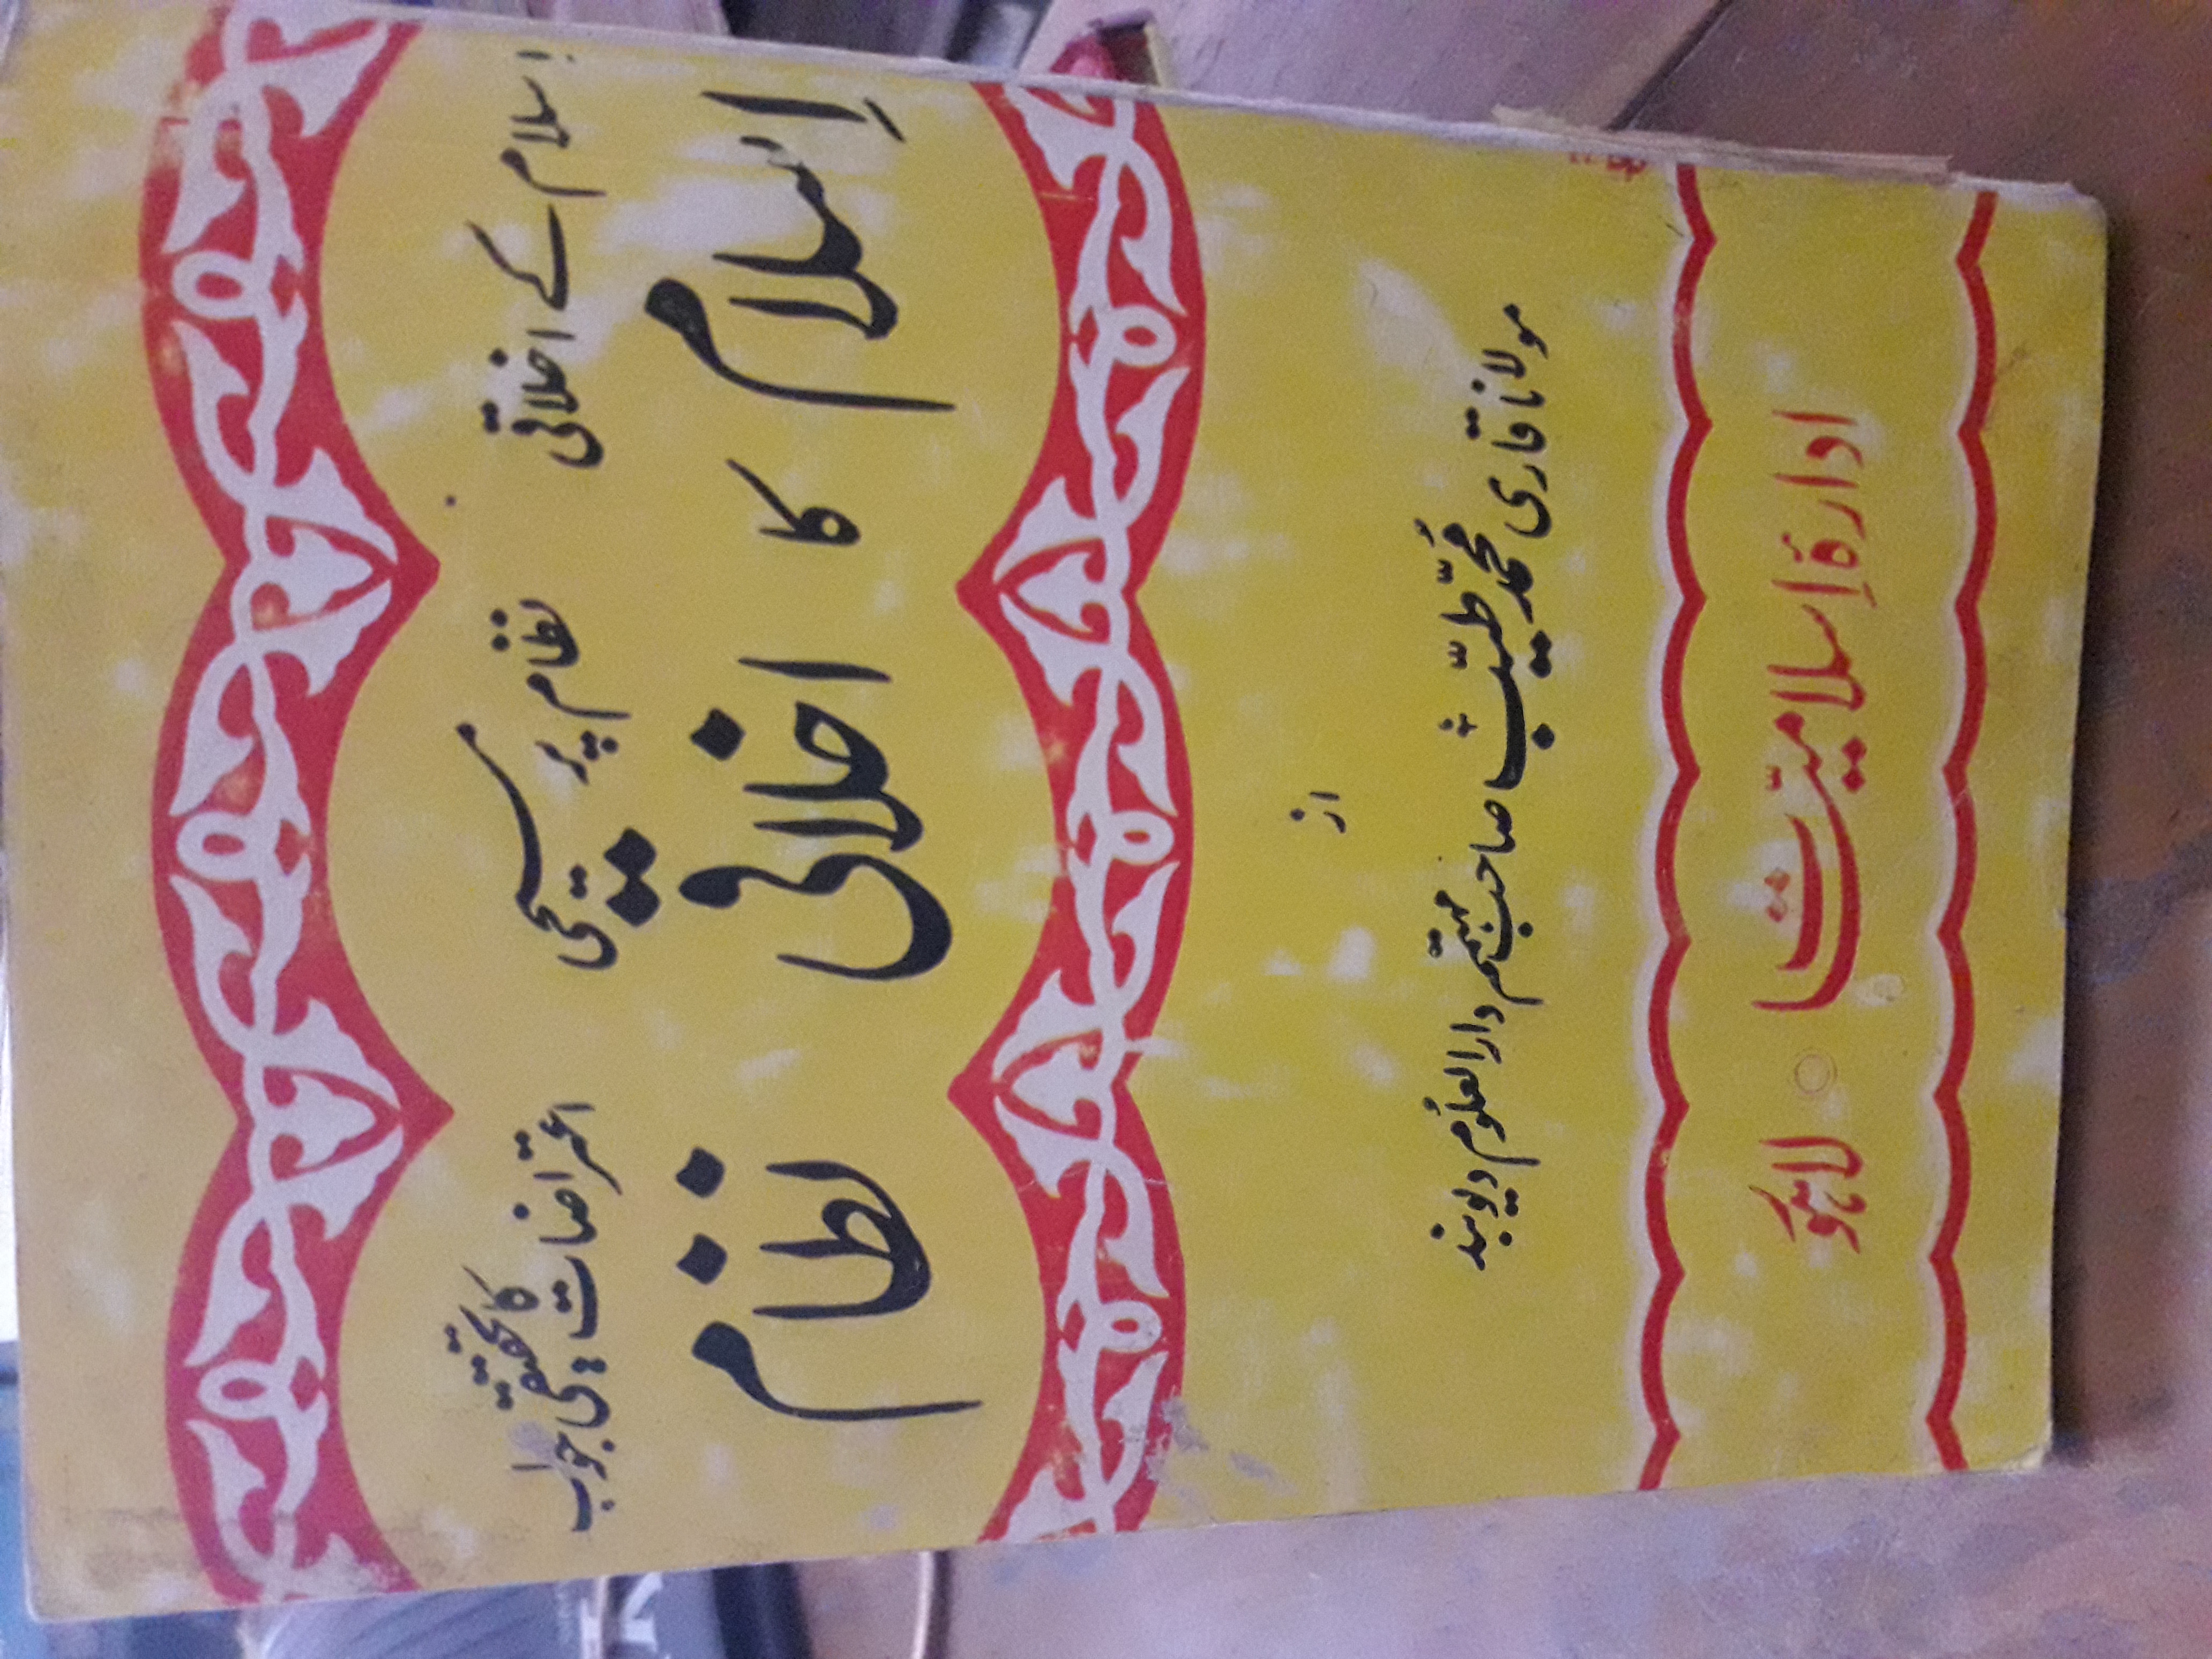 اسلام کے اخلاقی نظام پر مسیحی اعتراضات کا تحقیقی جواب
اِسلام کا اخلاقی نظام
از
مولانا قاری مُحمّد طیّبؒ صاحب مہتمم دارالعلوم دیوبند
ادارۂ اِسلامیّات ○ لاہور